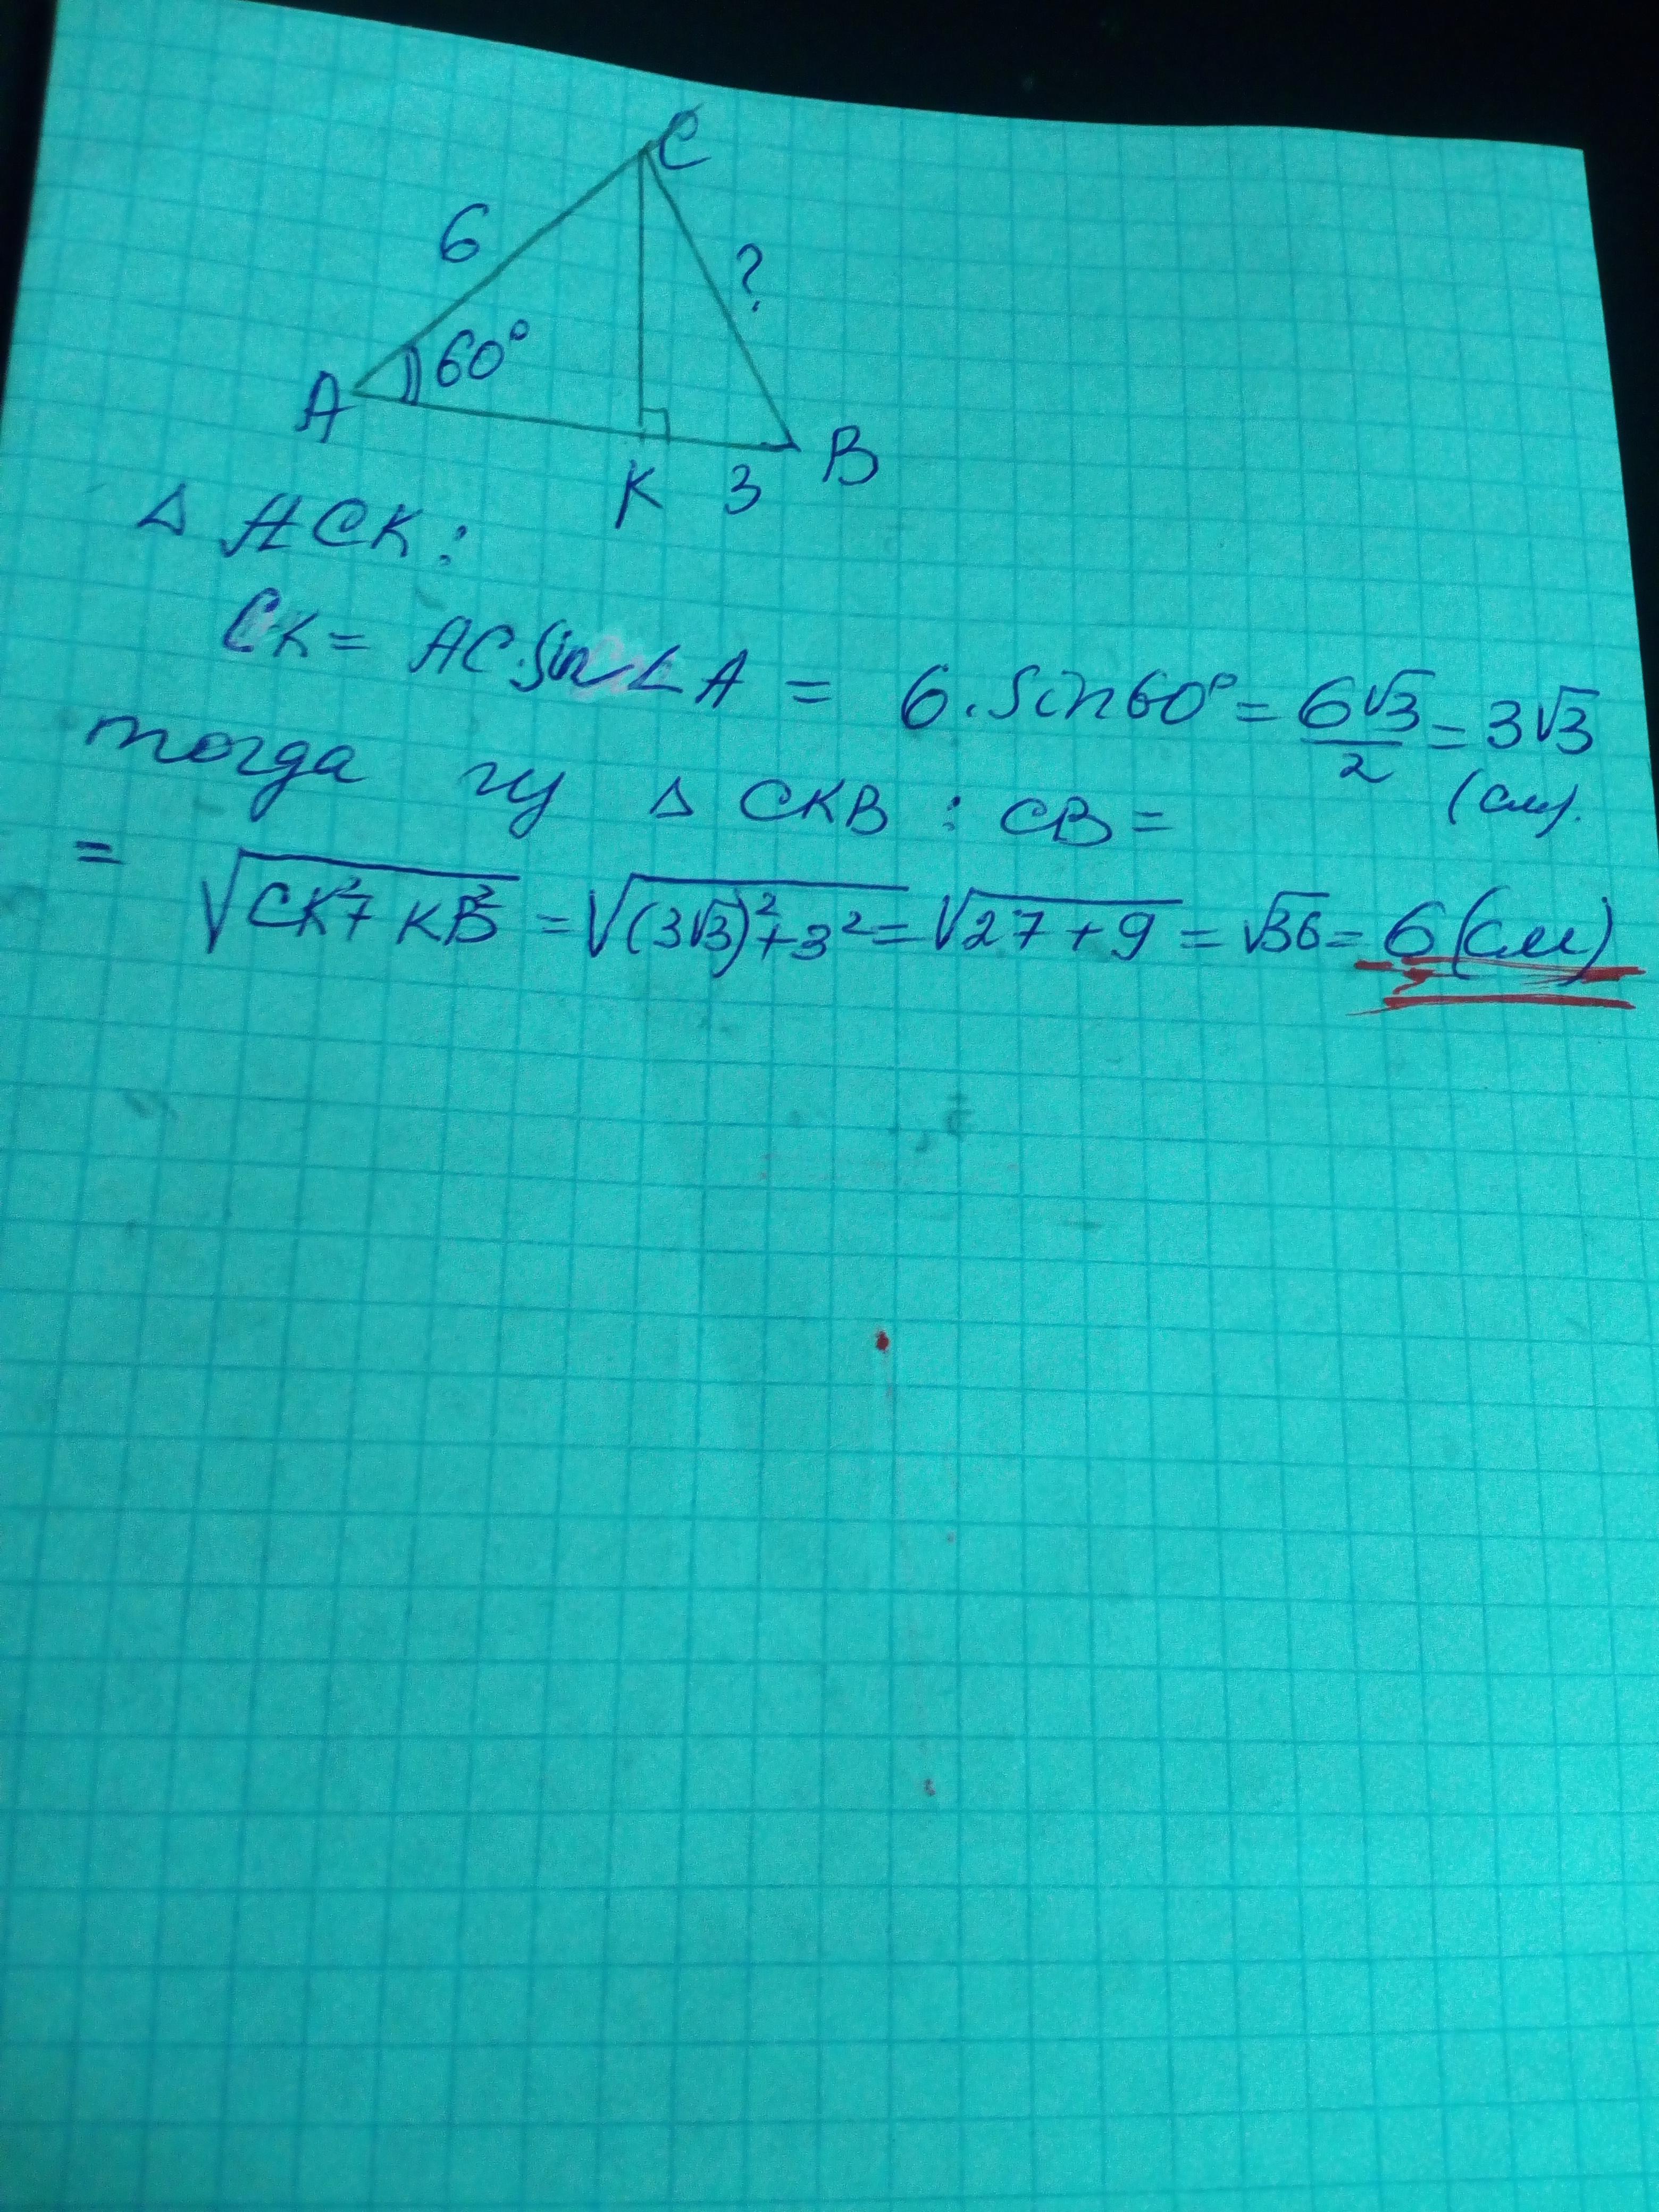 C
6
?
60°
A
K 3 B
△ ACK:
CK = AC·sin∠A = 6·sin60° = 6√3/2 = 3√3
(см).
тогда из △ CKB : CB =
= √(CK²+KB²) = √((3√3)²+3²) = √(27+9) = √36 = 6(см)